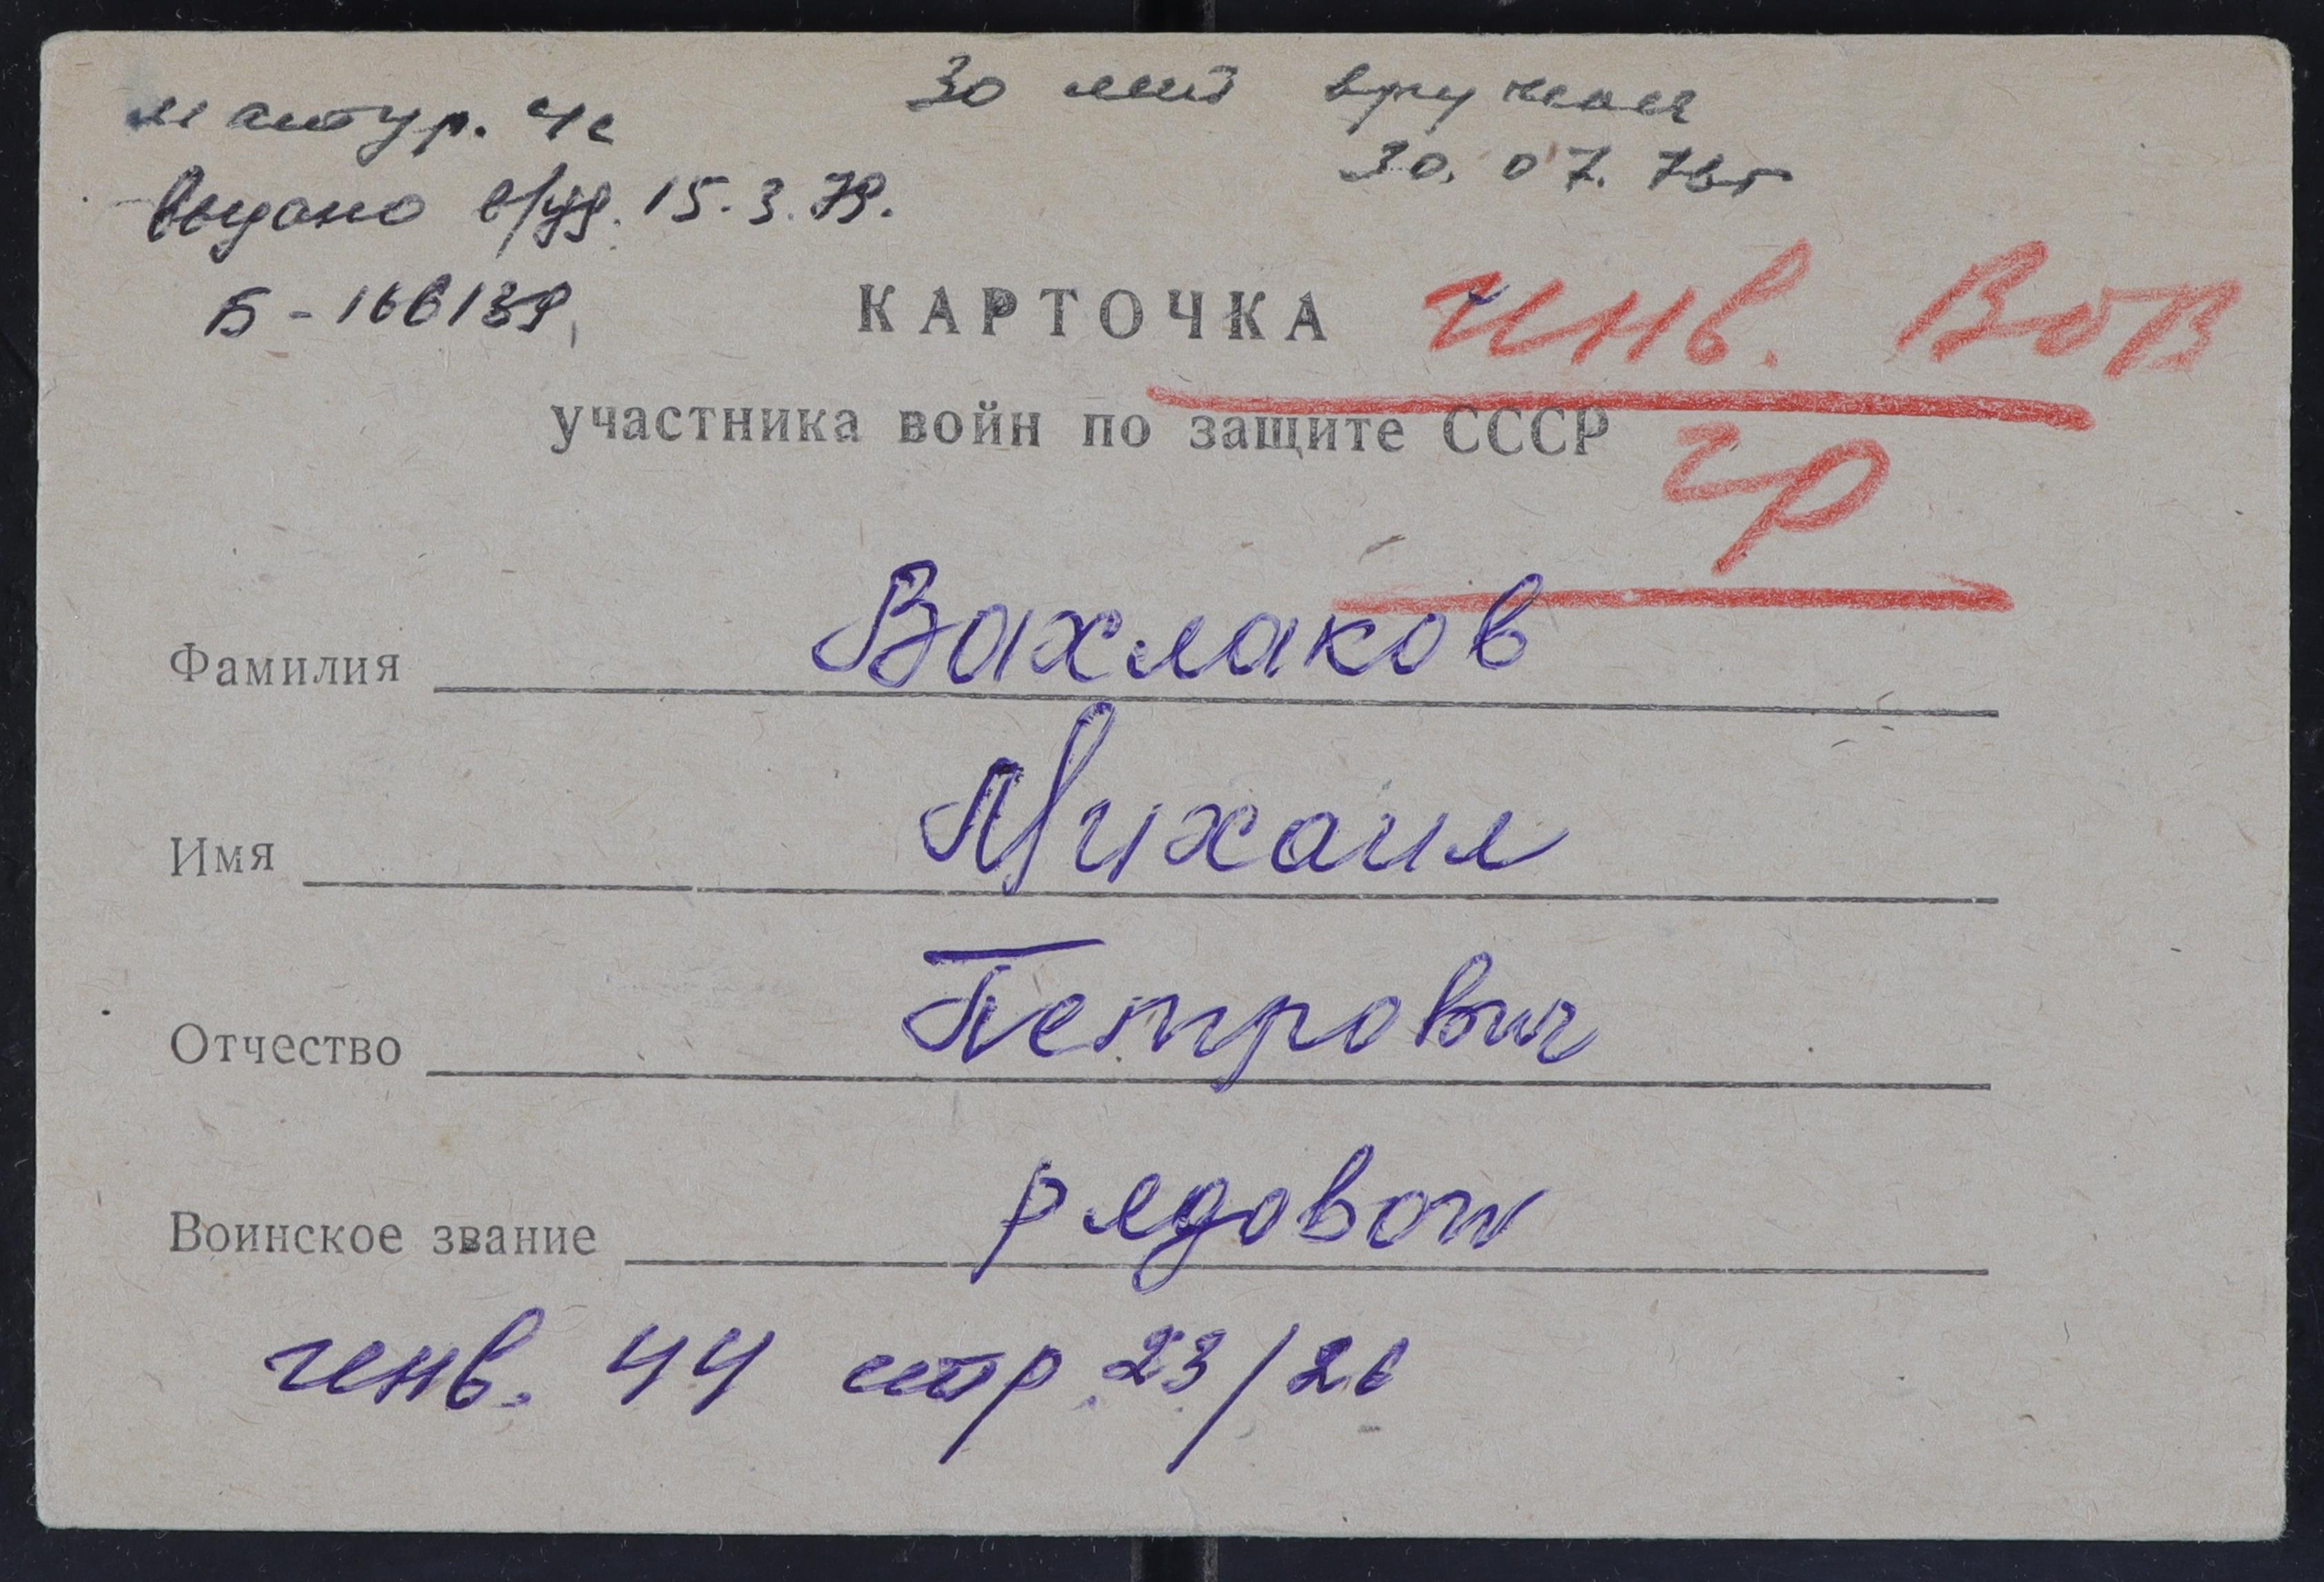 30 лет вручена
30.07.76г
мантур. ус
Выдано в/уд. 15.3.79.
Б - 166139
КАРТОЧКА инв. ВОВ
участника войн по защите СССР
гр
Фамилия Вахлаков
Имя Михаил
Отчество Петрович
Воинское звание рядовой
инв. 44 стр. 23/26